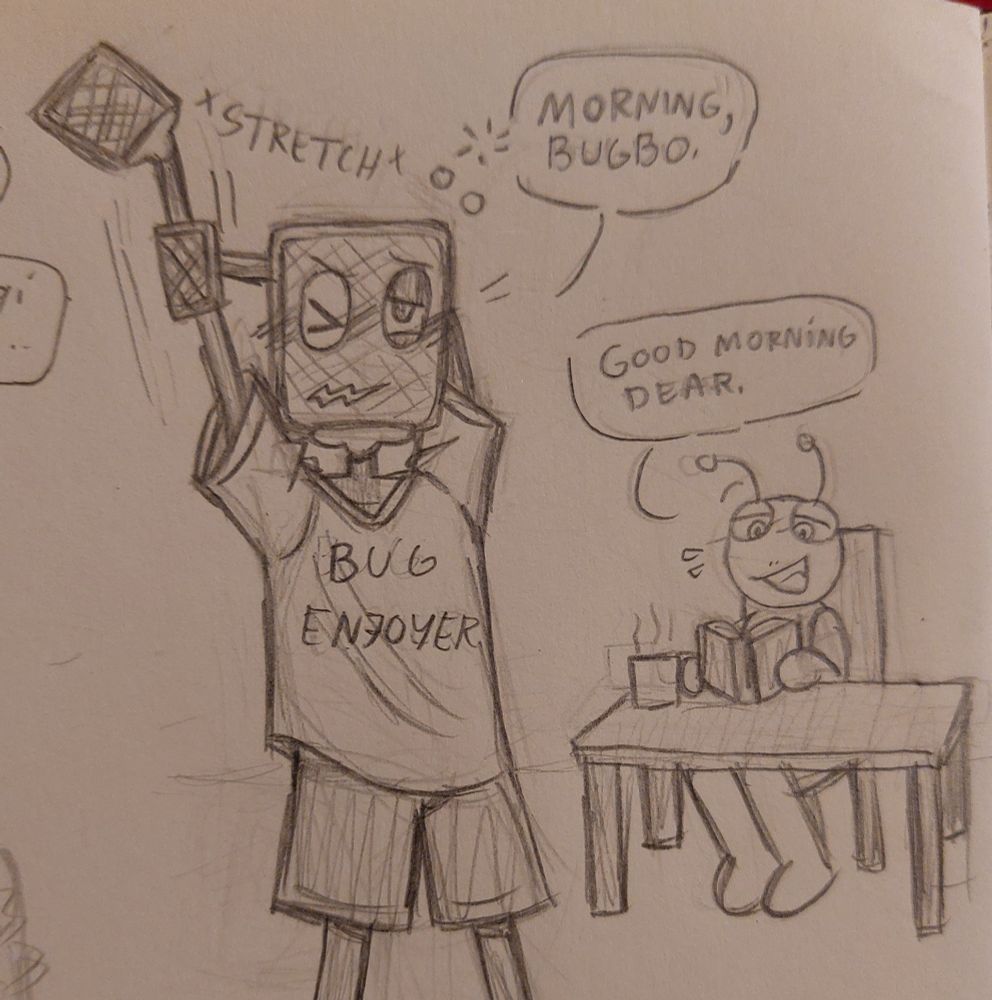 *STRETCH*
MORNING,
BUGBO.
GOOD MORNING
DEAR.
BUG
ENJOYER